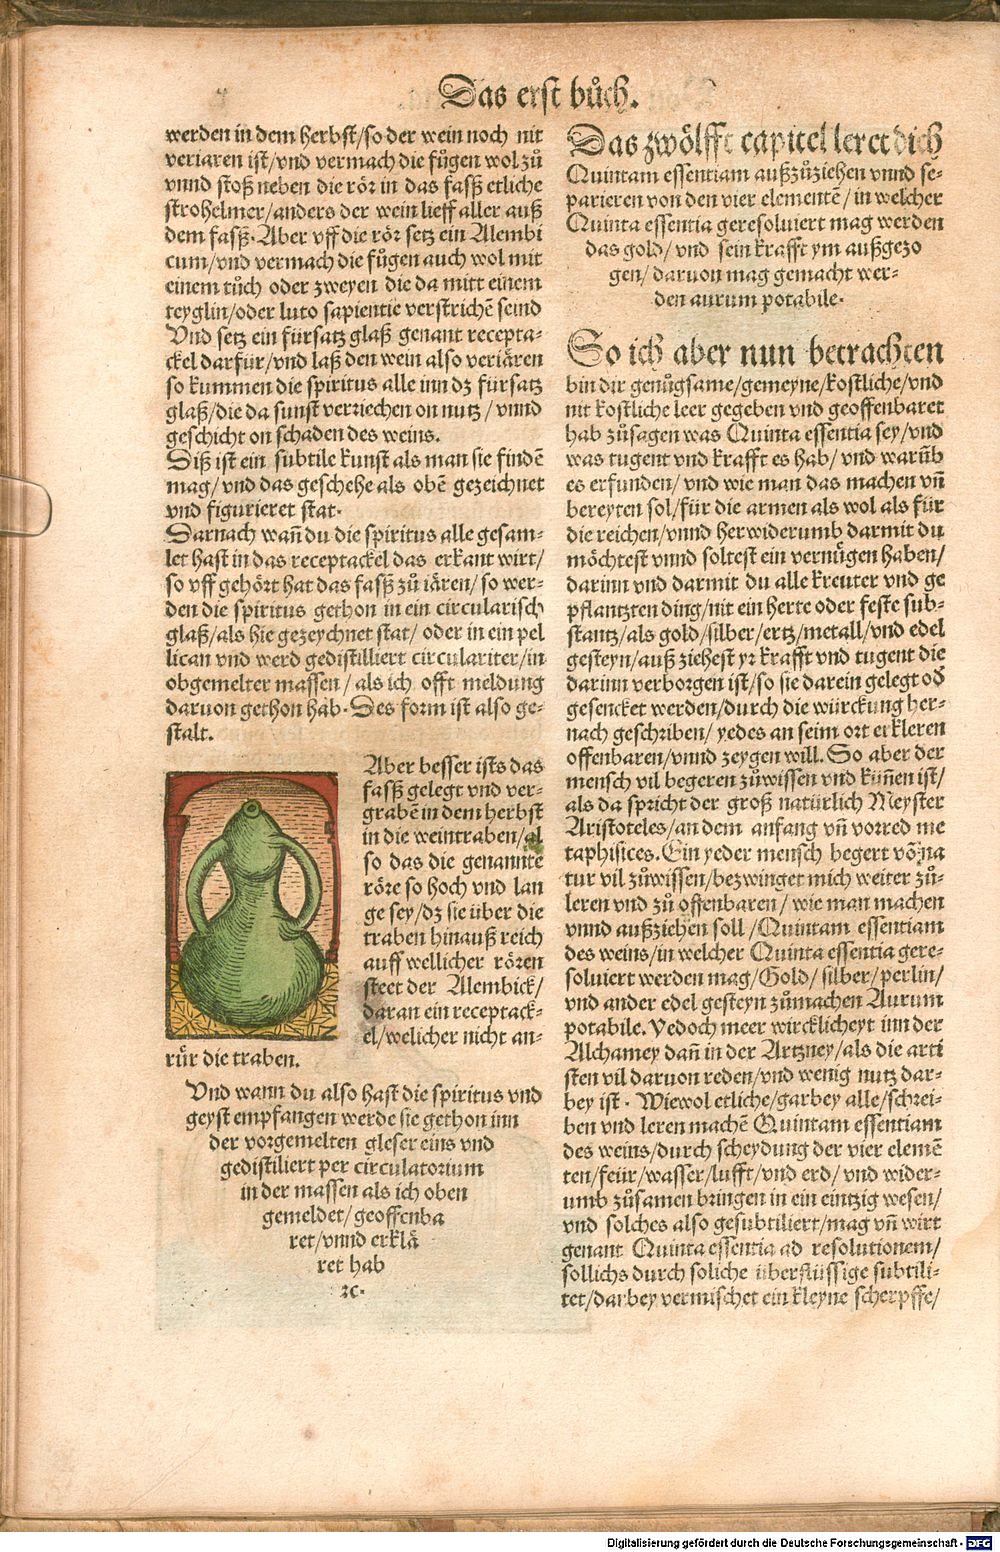 Das erst bůch.
werden in dem herbst/so der wein noch nit
veriaren ist/vnd vermach die fůgen wol zů
vnnd stoß neben die rör in das fasß etliche
strohelmer/anders der wein lieff aller auß
dem fasß. Aber vff die rör setz ein Alembi
cum/vnd vermach die fůgen auch wol mit
einem tůch oder zweyen die da mitt einem
teyglin/oder luto sapientie verstrichē seind
Vnd setz ein fürsatz glaß genant recepta-
ckel darfür/vnd laß den wein also veriären
so kummen die spiritus alle inn dz fürsatz
glaß/die da sunst verriechen on nutz/vnnd
geschicht on schaden des weins.
Diß ist ein subtile kunst als man sie findē
mag/vnd das geschehe als obē gezeichnet
vnd figurieret stat.
Darnach wañ du die spiritus alle gesam-
let hast in das receptackel das erkant wirt/
so vff gehört hat das fasß zů iären/so wer-
den die spiritus gethon in ein circularisch
glaß/als hie gezeychnet stat/oder in ein pel
lican vnd werd gedistilliert circulariter/in
obgemelter massen/als ich offt meldung
daruon gethon hab. Des form ist also ge-
stalt.
Aber besser ists das
fasß gelegt vnd ver-
grabē in dem herbst
in die weintraben/al
so das die genannte
röre so hoch vnd lan
ge sey/dz sie über die
traben hinauß reich
auff wellicher rören
steet der Alembick/
daran ein receptack-
el/welicher nicht an-
rür die traben.
Vnd wann du also hast die spiritus vnd
geyst empfangen werde sie gethon inn
der vorgemelten gleser eins vnd
gedistiliert per circulatorium
in der massen als ich oben
gemeldet/geoffenba
ret/vnnd erklä
ret hab
ꝛc.
Das zwölfft capitel leret dich
Quintam essentiam außzůziehen vnnd se-
parieren von den vier elementē/in welcher
Quinta essentia geresoluiert mag werden
das gold/vnd sein krafft ym außgezo
gen/daruon mag gemacht wer-
den aurum potabile.
So ich aber nun betrachten
bin dir genůgsame/gemeyne/kostliche/vnd
nit kostliche leer gegeben vnd geoffenbaret
hab zůsagen was Quinta essentia sey/vnd
was tugent vnd krafft es hab/vnd warūb
es erfunden/vnd wie man das machen vñ
bereyten sol/für die armen als wol als für
die reichen/vnnd herwiderumb darmit du
möchtest vnnd soltest ein vernůgen haben/
darinn vnd darmit du alle kreuter vnd ge
pflantzten ding/nit ein herte oder feste sub-
stantz/als gold/silber/ertz/metall/vnd edel
gesteyn/auß ziehest yr krafft vnd tugent die
darinn verborgen ist/so sie darein gelegt oď
gesencket werden/durch die würckung her-
nach geschriben/yedes an seim ort erkleren
offenbaren/vnnd zeygen will. So aber der
mensch vil begeren zůwissen vnd künen ist/
als da spricht der groß natürlich Meyster
Aristoteles/an dem anfang vñ vorred me
taphisices. Ein yeder mensch begert vō na
tur vil zůwissen/bezwinget mich weiter zů-
leren vnd zů offenbaren/wie man machen
vnnd außziehen soll/Quintam essentiam
des weins/in welcher Quinta essentia gere-
soluiert werden mag/Gold/silber/perlin/
vnd ander edel gesteyn zůmachen Aurum
potabile. Yedoch meer wircklicheyt inn der
Alchamey dañ in der Artzney/als die arti
sten vil daruon reden/vnd wenig nutz dar-
bey ist. Wiewol etliche/garbey alle/schrei-
ben vnd leren machē Quintam essentiam
des weins/durch scheydung der vier elemē
ten/feür/wasser/lufft/vnd erd/vnd wider-
umb zůsamen bringen in ein eintzig wesen/
vnd solches also gesubtiliert/mag vñ wirt
genant Quinta essentia ad resolutionem/
sollichs durch soliche überflüssige subtili-
tet/darbey vermischet ein kleyne scherpffe/
Digitalisierung gefördert durch die Deutsche Forschungsgemeinschaft - DFG